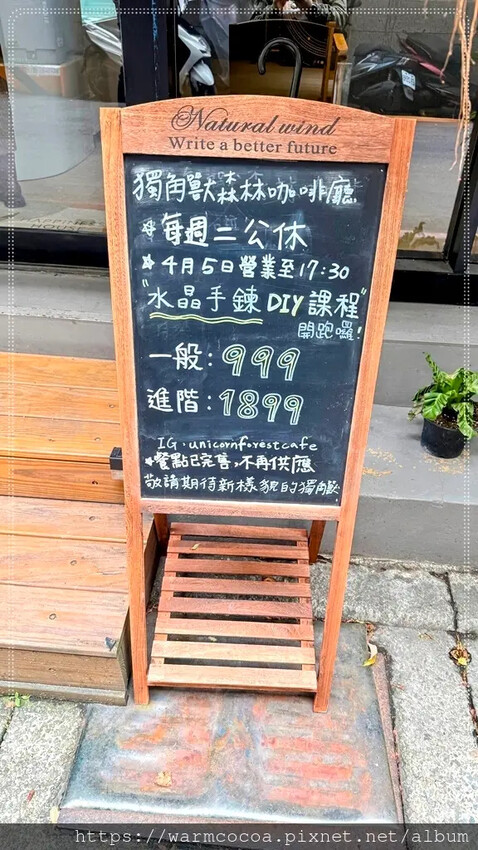 Natural wind
Write a better future
獨角獸森林咖啡廳
* 每週二公休
★ 4月5日營業至17:30
"水晶手鍊DIY課程"
開跑囉!
一般:999
進階:1899
IG:unicornforestcafe
*餐點已完售,不再供應
敬請期待新樣貌的獨角獸
https://warmcocoa.pixnet.net/album